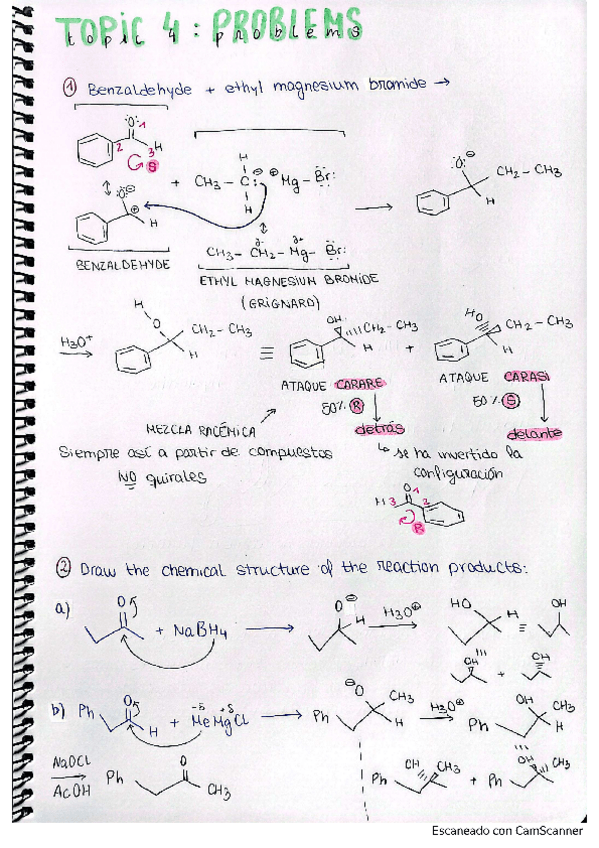 TOPIC 4: PROBLEMS
topic 4: problems
① Benzaldehyde + ethyl magnesium bromide →
:O: 1
2
3 H
S
+ CH₃ – C:⊖ ⊕Mg – Br:
H
H
:O:⊖
⊕
H
CH₃ – CH₂ – Mg – Br:
δ-
δ+
→
:O:⊖
CH₂ – CH₃
H
BENZALDEHYDE
ETHYL MAGNESIUM BROMIDE
(GRIGNARD)
H₃O⁺
→
H
O
CH₂ – CH₃
H
≡
OH
CH₂ – CH₃
H
+
HO
CH₂ – CH₃
H
ATAQUE CARARE
ATAQUE CARASI
50% R
50% S
MEZCLA RACÉMICA
detrás
delante
Siempre así a partir de compuestos
NO quirales
↳ se ha invertido la
configuración
H 3
O 1
2
R
② Draw the chemical structure of the reaction products:
a)
O
+ NaBH₄ →
O⊖
H
H₃O⊕
→
HO
H
≡
OH
OH
+
OH
b) Ph
O
H
+ MeMgCl →
-δ +δ
Ph
⊖O
CH₃
H
H₃O⊕
→
Ph
OH
CH₃
H
NaOCl
→
AcOH
Ph
O
CH₃
Ph
OH
CH₃
+ Ph
OH
CH₃
Escaneado con CamScanner